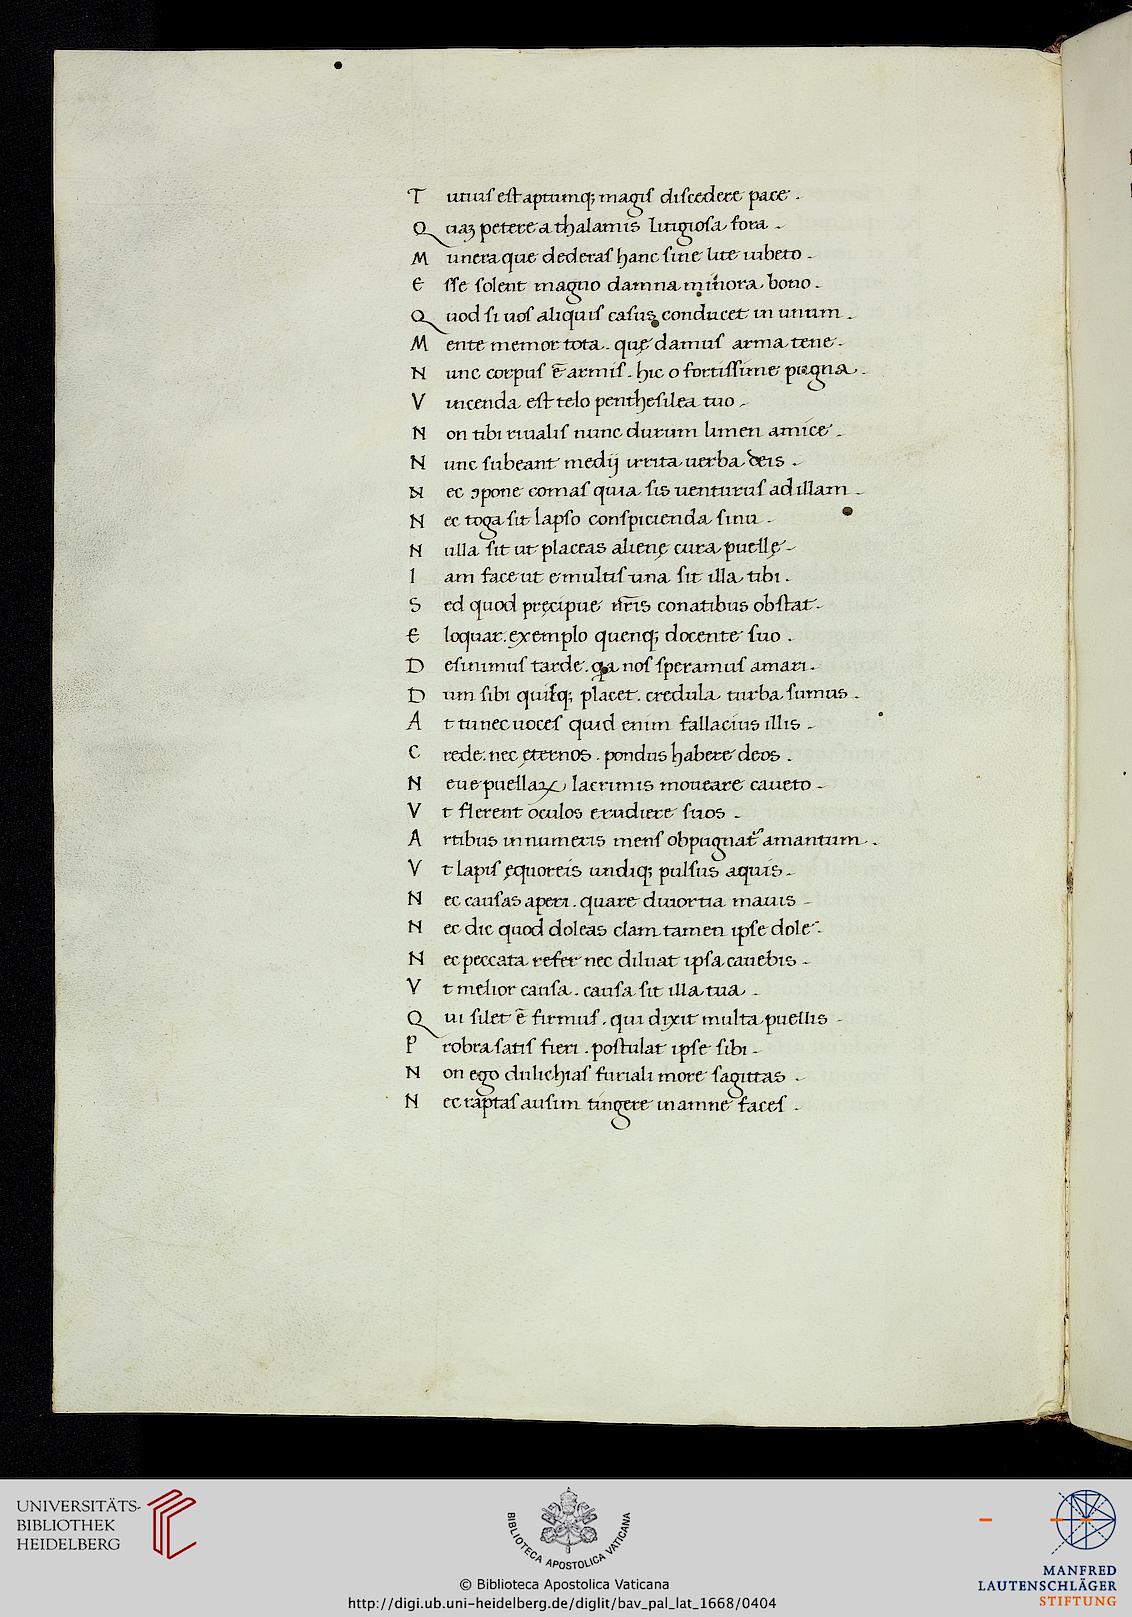 T utius est aptumq; magis discedere pace.
Q uaꝫ petere a thalamis litigiosa fora.
M unera que dederas hanc sine lite iubeto.
E sse solent magno damna minora bono.
Q uod si uos aliquis casus conducet in unum.
M ente memor tota. quę damus arma tene.
N unc corpus ē armis. hic o fortissime pugna.
V incenda est telo penthesilea tuo.
N on tibi riualis nunc durum limen amice.
N unc subeant medij irrita uerba deis.
N ec ꝯpone comas quia sis uenturus ad illam.
N ec toga sit lapso conspicienda sinu.
N ulla sit ut placeas alienę cura puellę.
I am face ut e multis una sit illa tibi.
S ed quod pręcipue nr̄is conatibus obstat.
E loquar. exemplo quenq; docente suo.
D esinimus tarde. qa nos speramus amari.
D um sibi quisq; placet. credula turba sumus.
A t tu nec uoces quid enim fallacius illis.
C rede. nec ęternos. pondus habere deos.
N eue puellaꝝ lacrimis moueare caueto.
V t flerent oculos erudiere suos.
A rtibus innumeris mens obpugnat᷑ amantum.
V t lapis ęquoreis undiq; pulsus aquis.
N ec causas aperi. quare diuortia mauis.
N ec dic quod doleas clam tamen ipse dole.
N ec peccata refer nec diluat ipsa cauebis.
V t melior causa. causa sit illa tua.
Q ui silet ē firmus. qui dixit multa puellis
P robra satis fieri. postulat ipse sibi.
N on ego dulichias furiali more sagittas.
N ec raptas ausim tingere in amne faces.
UNIVERSITÄTS-
BIBLIOTHEK
HEIDELBERG
BIBLIOTECA APOSTOLICA VATICANA
© Biblioteca Apostolica Vaticana
http://digi.ub.uni-heidelberg.de/diglit/bav_pal_lat_1668/0404
MANFRED
LAUTENSCHLÄGER
STIFTUNG